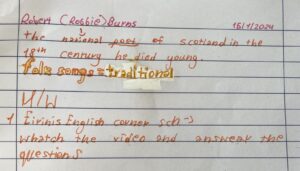 Robert (Robbie) Burns 16/1/2024
the national poet of scotland in the
18th century he died young.
folk songs = traditional
H/W
1 Eirinis English corner sch →
whatch the video and answear the
questions